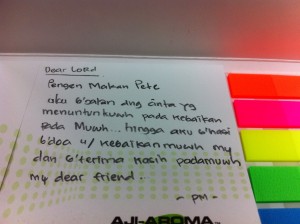 Dear Lord
Pengen Makan Pete
aku b'gatan dng cinta yg
menuntunkuwh pada kebaikan
pada Muwh... hingga aku b'hasi
b'doa u/ kebaikan muwh my
dan b'terima kasih padamuwh
my dear friend..
- PM -
AJI-AROMA